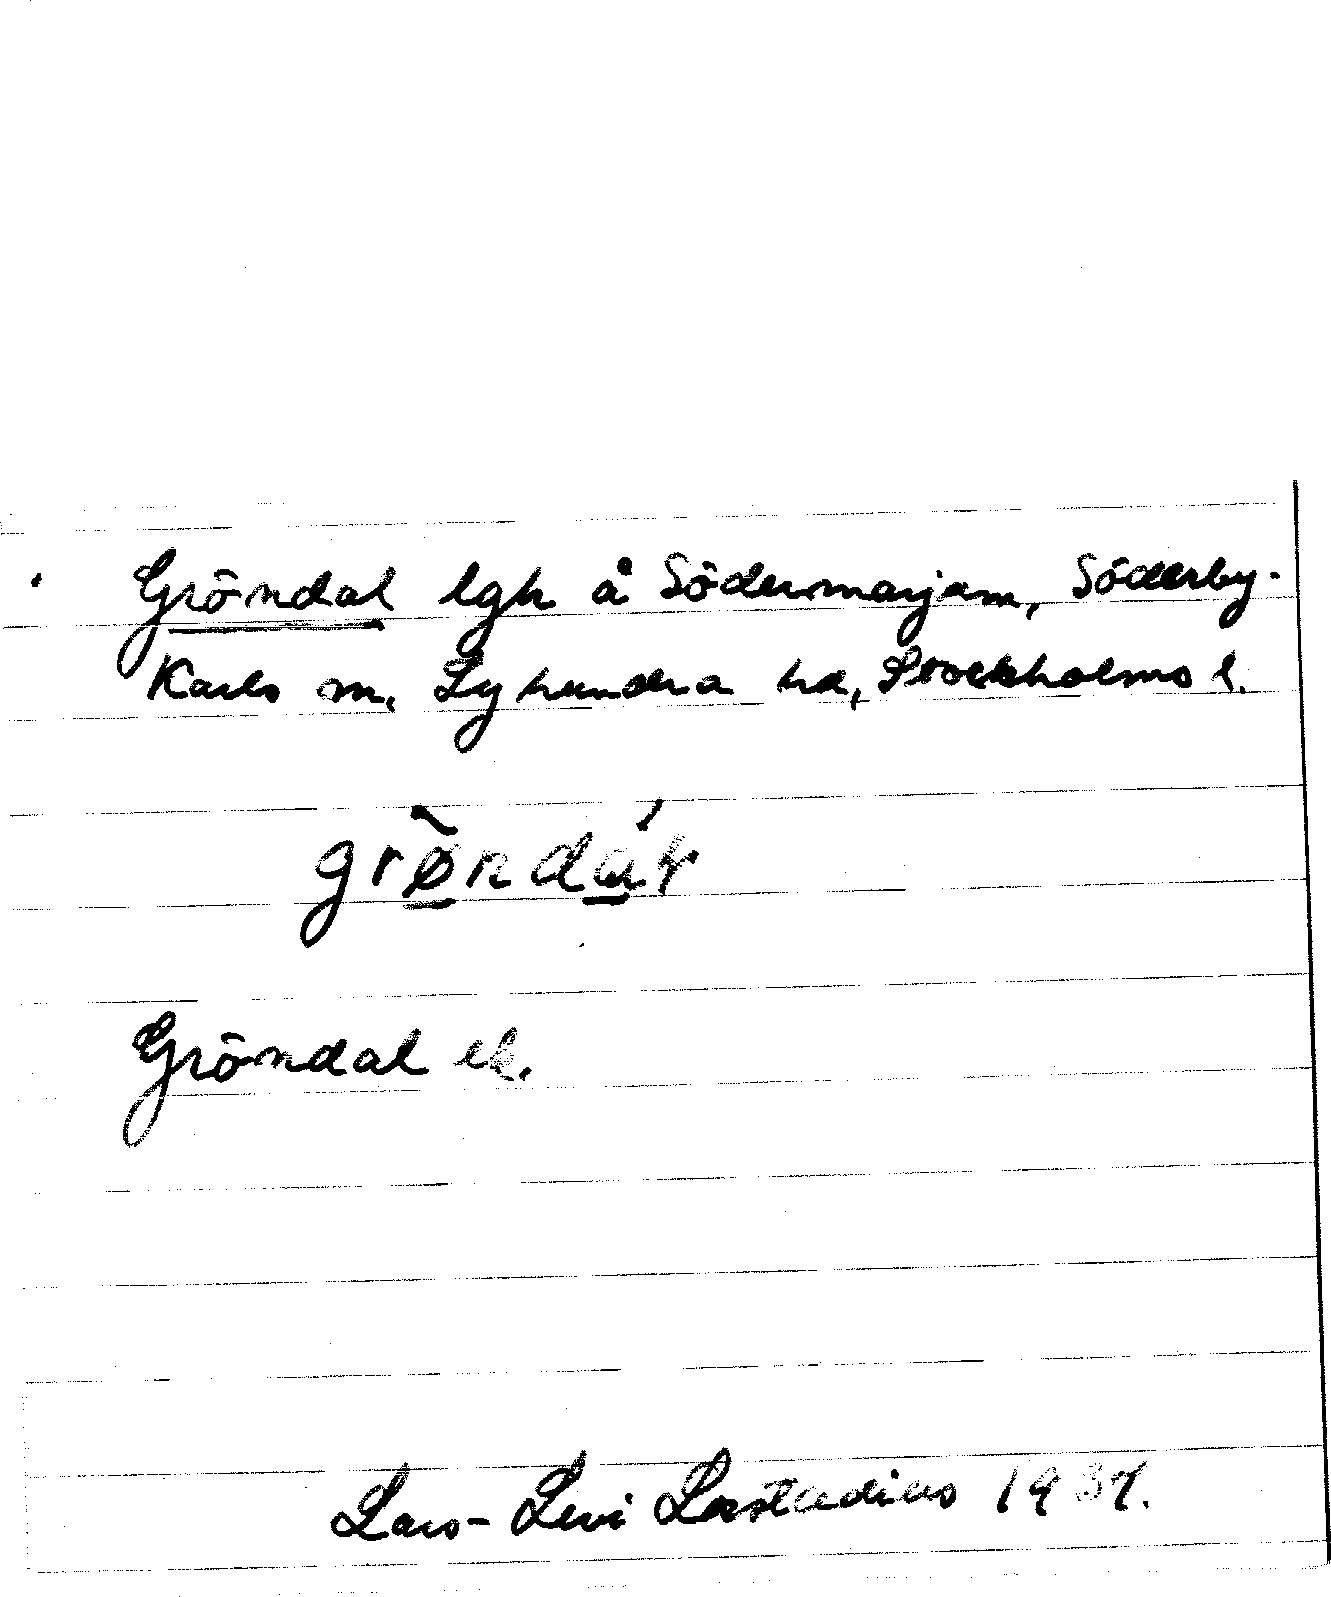 Gröndal lgh å Södermarjam, Söderby-
Karls sn. Lyhundra hd, Stockholms l.
grø̀ndáɫ
Gröndal ek.
Lars-Levi Læstadius 1937.